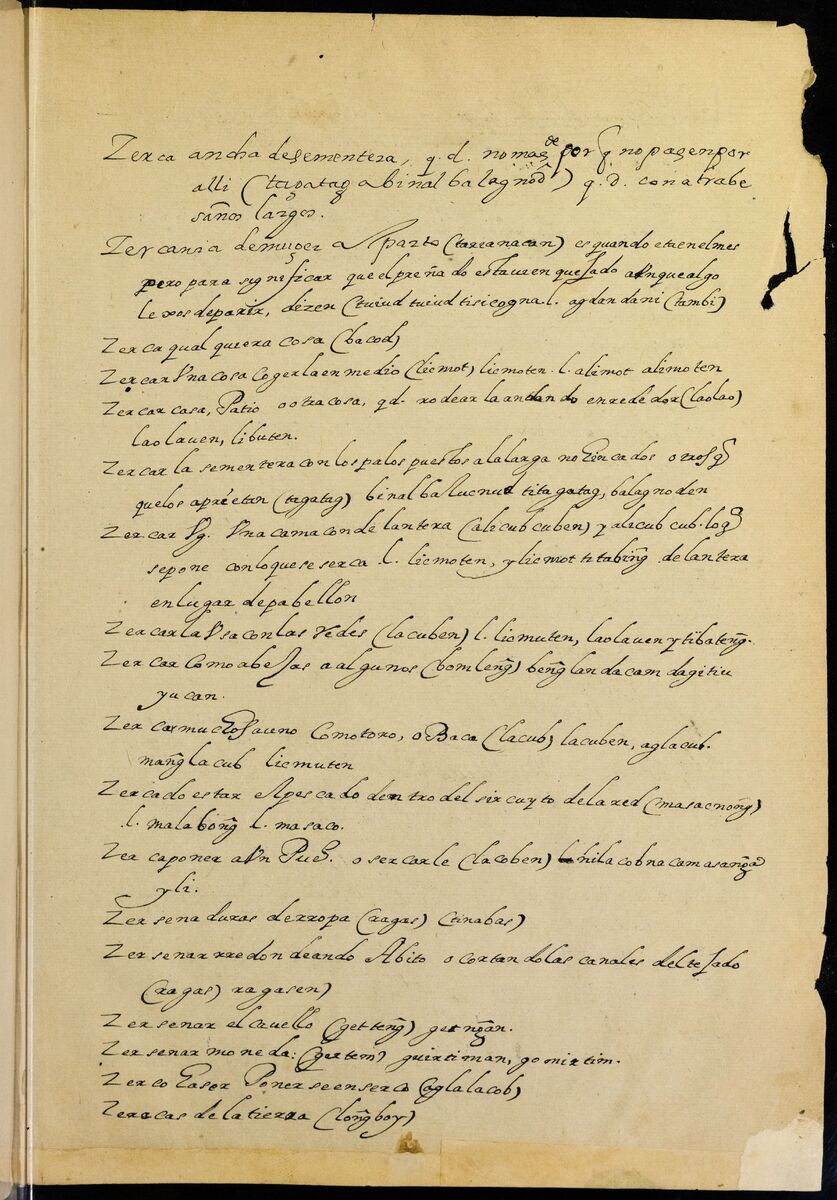 Zerca ancha desementera, q. d. nomas de por q̃ nopasenpor
alli (tapatag abinal balagnod) q. d. conatrabe
saños largos.
Zercania demuger alparto (tarcanacan) esquando etaenelmes
pero para significar queelpreñado estavien quesado aVnquealgo
lexos deparir, dizen (tuiud tuiud tisicogna. l. agdandani (tambi)
Zerca qualquiera cosa (bacod)
Zercar Vna cosa cogerlaenmedio (licmot) licmoten. l. alimot alimoten
Zercar casa, Patio o otracosa, qd. rodearla andando enrededor (laolao)
laolaven, libuten.
Zercar la sementera con los palos puestos alalarga no Hincados o trosq̃
quelos aprietan (tagatag) binalbalucnut titagatag, balagnoden
Zercar Vg. Vna cama con delantera (alicubcuben) y alicub cub. loq̃
sepone conloqueseserca .l. licmoten, y licmot titabing̃ delantera
enlugar depabellon
Zercar la Vsa con las redes (lacuben) l. licmuten, laolaven y tibateng̃.
Zercar como abejas aalgunos (bomleng̃) beng̃landacam dagitiu
yucan.
Zercar muchos auno comotoro, o Baca (lacub) lacuben, aglacub.
mang̃lacub licmuten
Zercado estar elpescado dentro del sircuyto dela red (masacnong̃)
.l. malabong̃ l. masaco.
Zerca poner aVn Pue. o sercarle (lacoben) hilacobnacamasang̃a
yli.
Zersenaduras derropa (ragas) (tinabas)
Zersenar rredondeando Abito o cortandolas canales del tesado
(ragas) ragasen)
Zersenar el cavello (getteng̃) getng̃an.
Zersenar moneda: (gertem) guirtiman, gomirtim.
Zerco Haser Ponerseenserco (aglalacob)
Zeracas de la tierra (long̃boy)